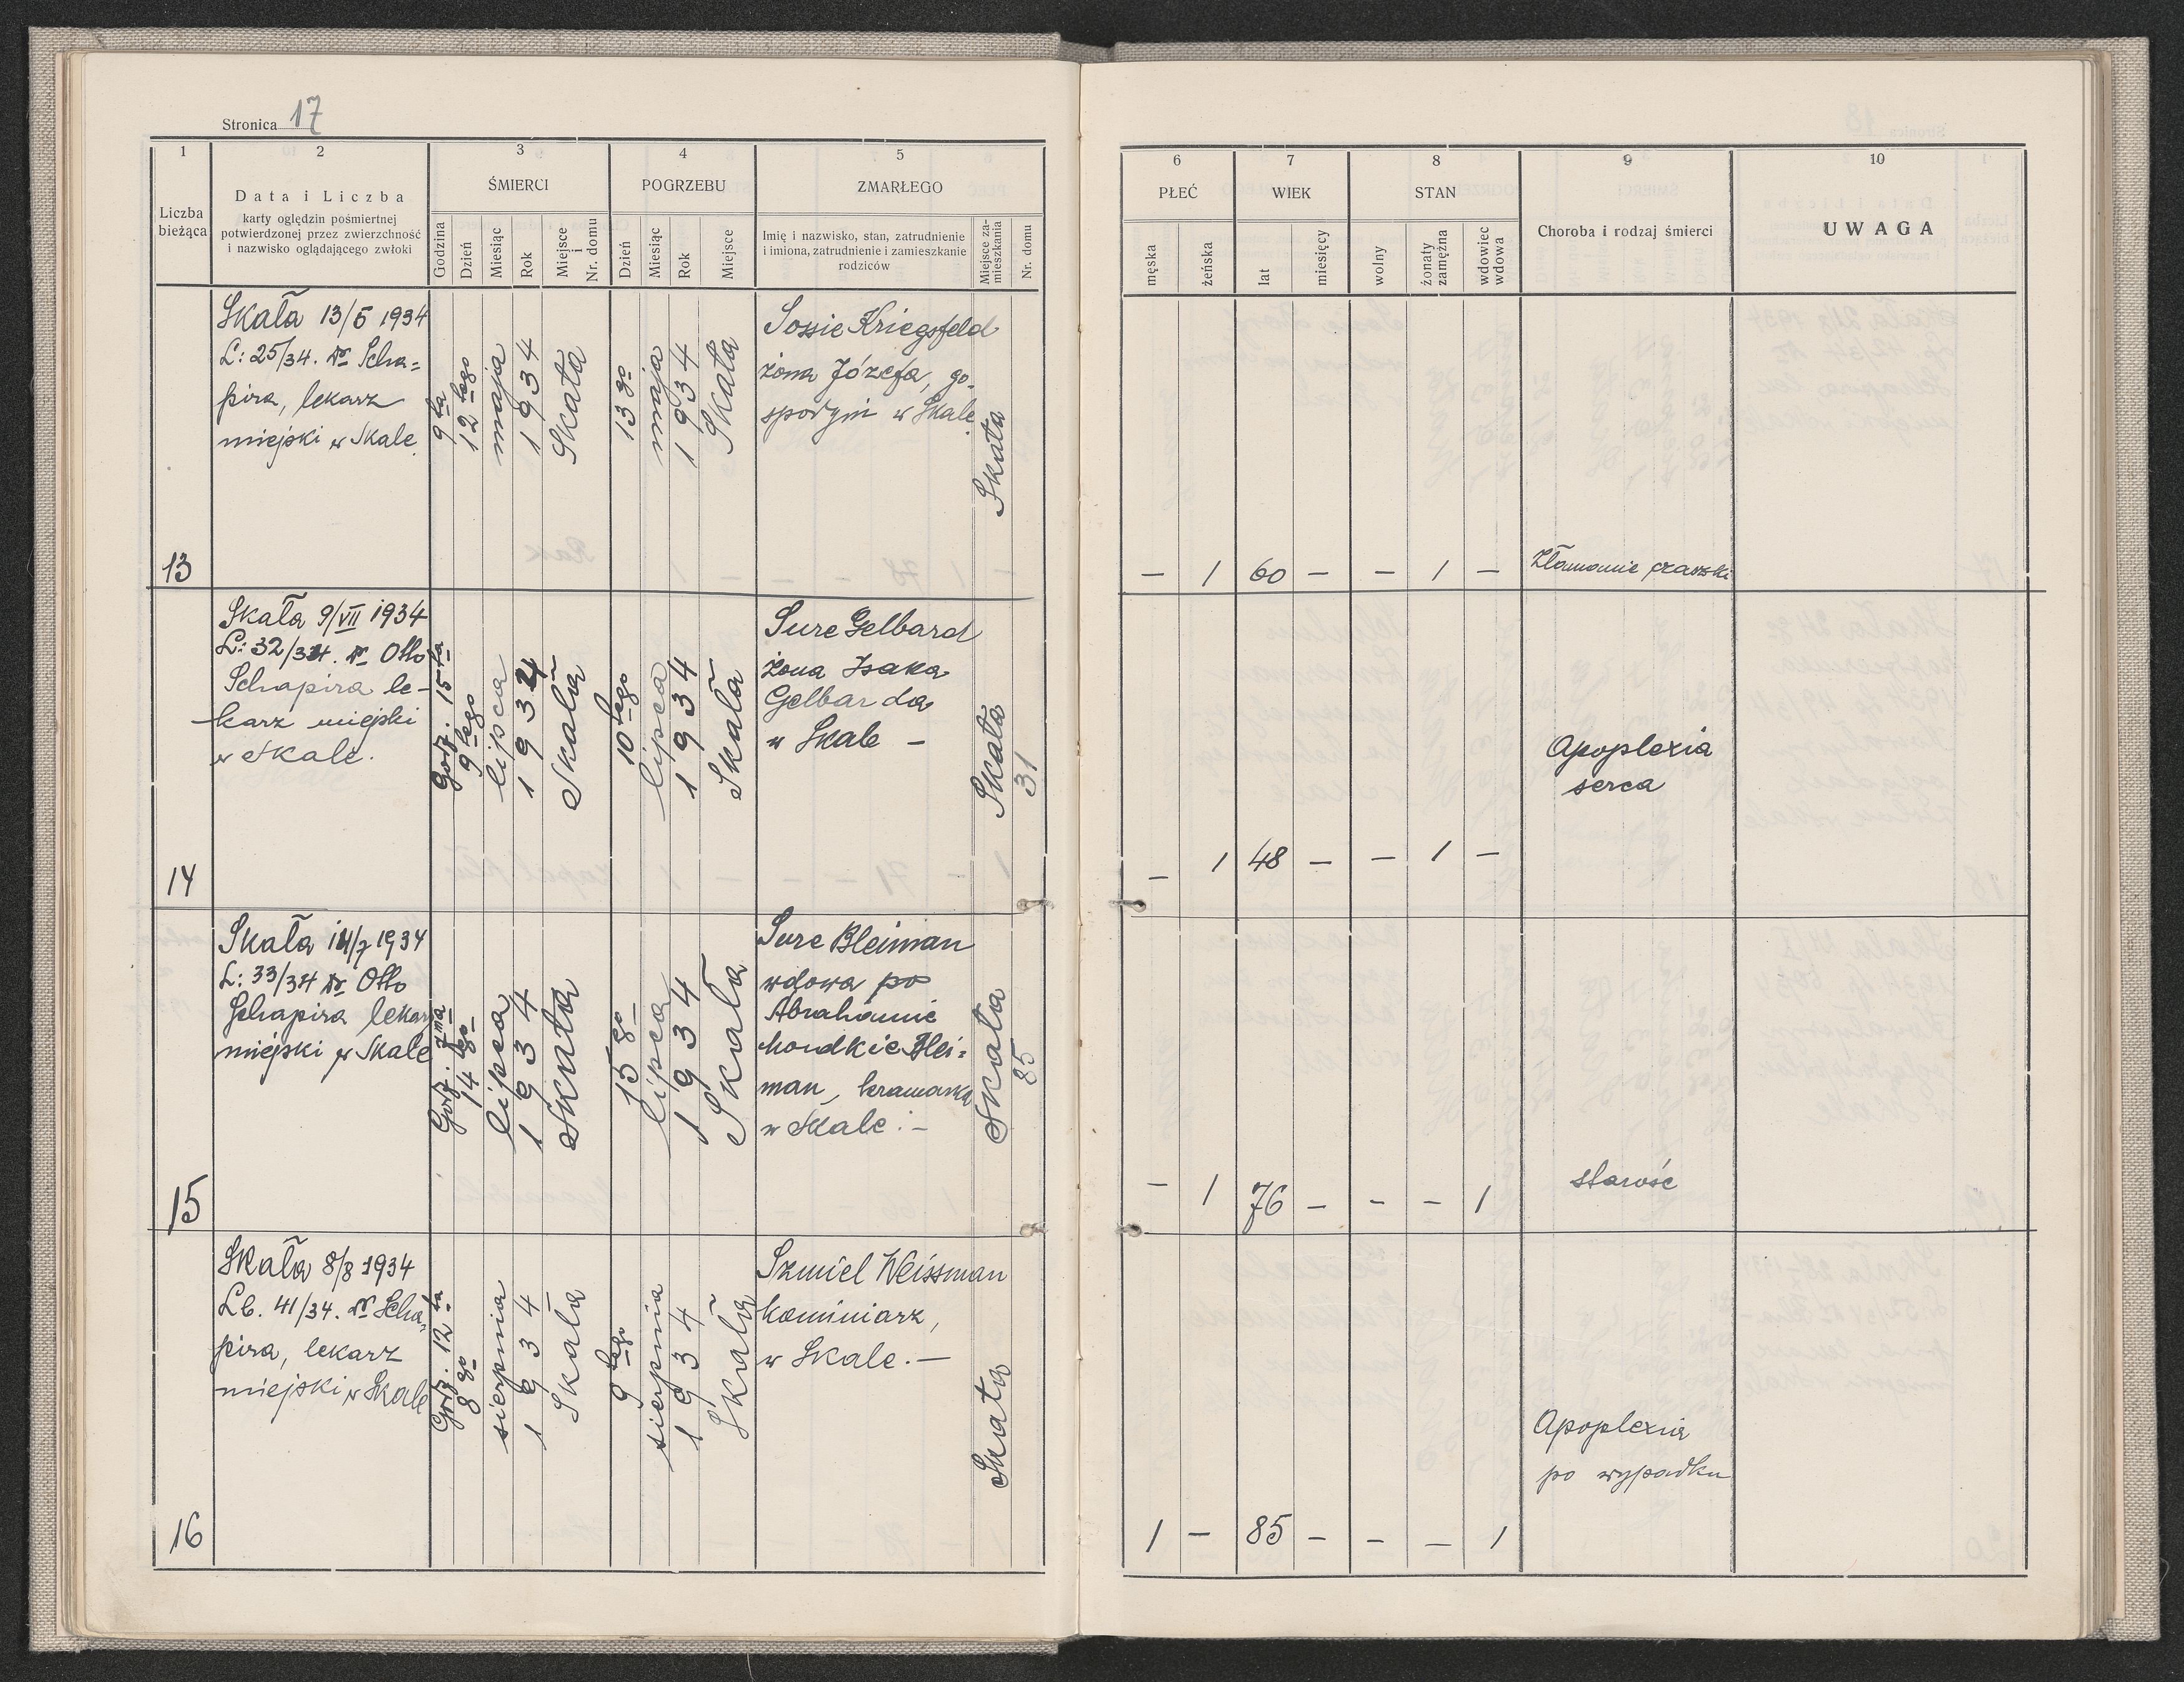 Stronica 17
1
2
3
4
5
Liczba bieżąca
Data i Liczba
karty oględzin pośmiertnej
potwierdzonej przez zwierzchność
i nazwisko oglądającego zwłoki
ŚMIERCI
Godzina
Dzień
Miesiąc
Rok
Miejsce i Nr. domu
POGRZEBU
Dzień
Miesiąc
Rok
Miejsce
ZMARŁEGO
Imię i nazwisko, stan, zatrudnienie
i imiona, zatrudnienie i zamieszkanie
rodziców
Miejsce za-
mieszkania
Nr. domu
6
7
8
9
10
PŁEĆ
męska
żeńska
WIEK
lat
miesięcy
STAN
wolny
żonaty
zamężna
wdowiec
wdowa
Choroba i rodzaj śmierci
UWAGA
13
Skała 13/5 1934
L: 25/34. Dr Scha=
pira, lekarz
miejski w Skale.
9ta
12tego
maja
1934
Skała
13go
maja
1934
Skała
Sossie Kriegsfeld
żona Józefa, go-
spodyni w Skale
Skała
— 1 60 — — 1 —
Złamanie czaszki
14
Skała 9/VII 1934
L: 32/34. Dr Otto
Schapira le-
karz miejski
w Skale.
Godz. 15ta
9tego
lipca
1934
Skała
10tego
lipca
1934
Skała
Sure Gelbard
żona Isaka
Gelbarda
w Skale —
Skała
31
— 1 48 — — 1 —
Apoplexia
serca
15
Skała 14/7 1934
L: 33/34 Dr Otto
Schapira lekarz
miejski w Skale
Godz. 7ma
14tego
lipca
1934
Skała
15go
lipca
1934
Skała
Sure Bleiman
wdowa po
Abrahamie
Mordkie Blei=
man, kramarka
w Skale. —
Skała
85
— 1 76 — — — 1
starość
16
Skała 8/8 1934
Lb. 41/34. Dr Scha=
pira, lekarz
miejski w Skale
Godz. 12ta
8go
sierpnia
1934
Skała
9tego
sierpnia
1934
Skała
Szmiel Weissman
kominiarz,
w Skale. —
Skała
1 — 85 — — — 1
Apoplexia
po wypadku